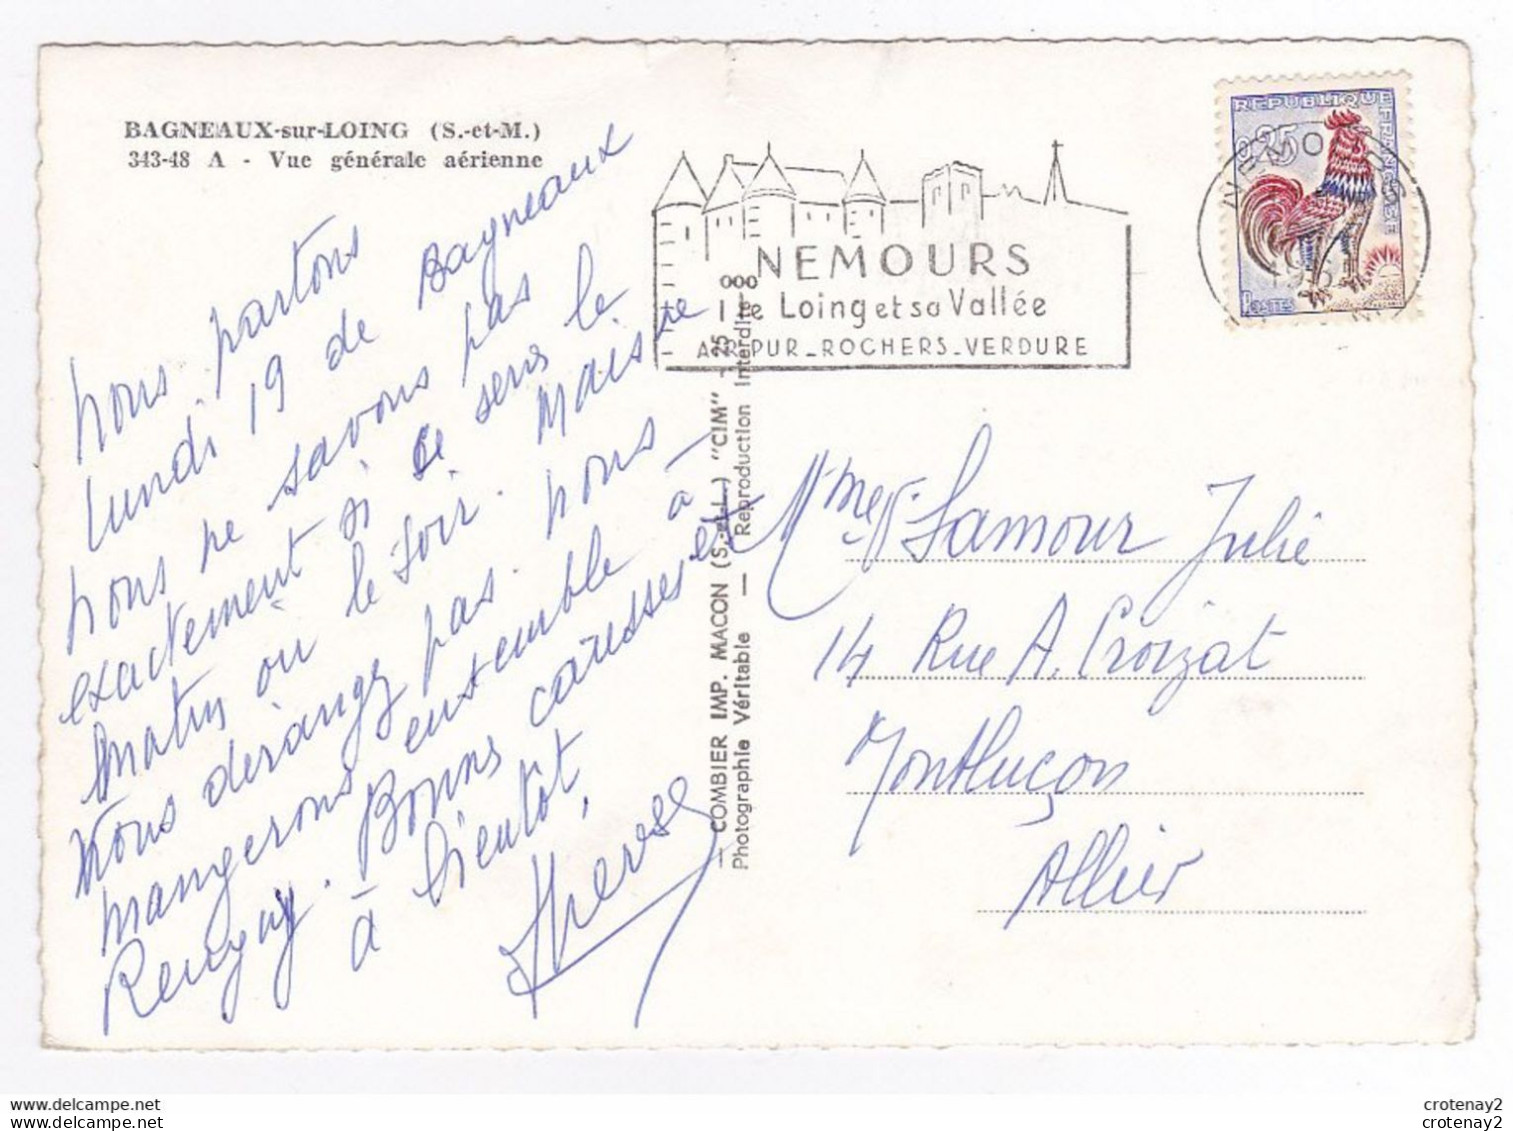 BAGNEAUX-sur-LOING (S.-et-M.)
343-48 A - Vue générale aérienne
nous partons
lundi 19 de Bagneaux
nous ne savons pas
exactement si ce sera le
matin ou le soir. Mais ne
vous dérangez pas. nous
mangerons ensemble à
Bonnes caresses et
à bientôt,
— COMBIER IMP. MACON (S.-et-L.) "CIM" —
Photographie Véritable — Reproduction Interdite
NEMOURS
le Loing et sa Vallée
AIR PUR_ROCHERS_VERDURE
REPUBLIQUE FRANÇAISE
0,25
POSTES
NEMOURS
Lamour Julie
14 Rue A. Croizat
Montluçon
Allier
crotenay2
crotenay2
crotenay2
crotenay2